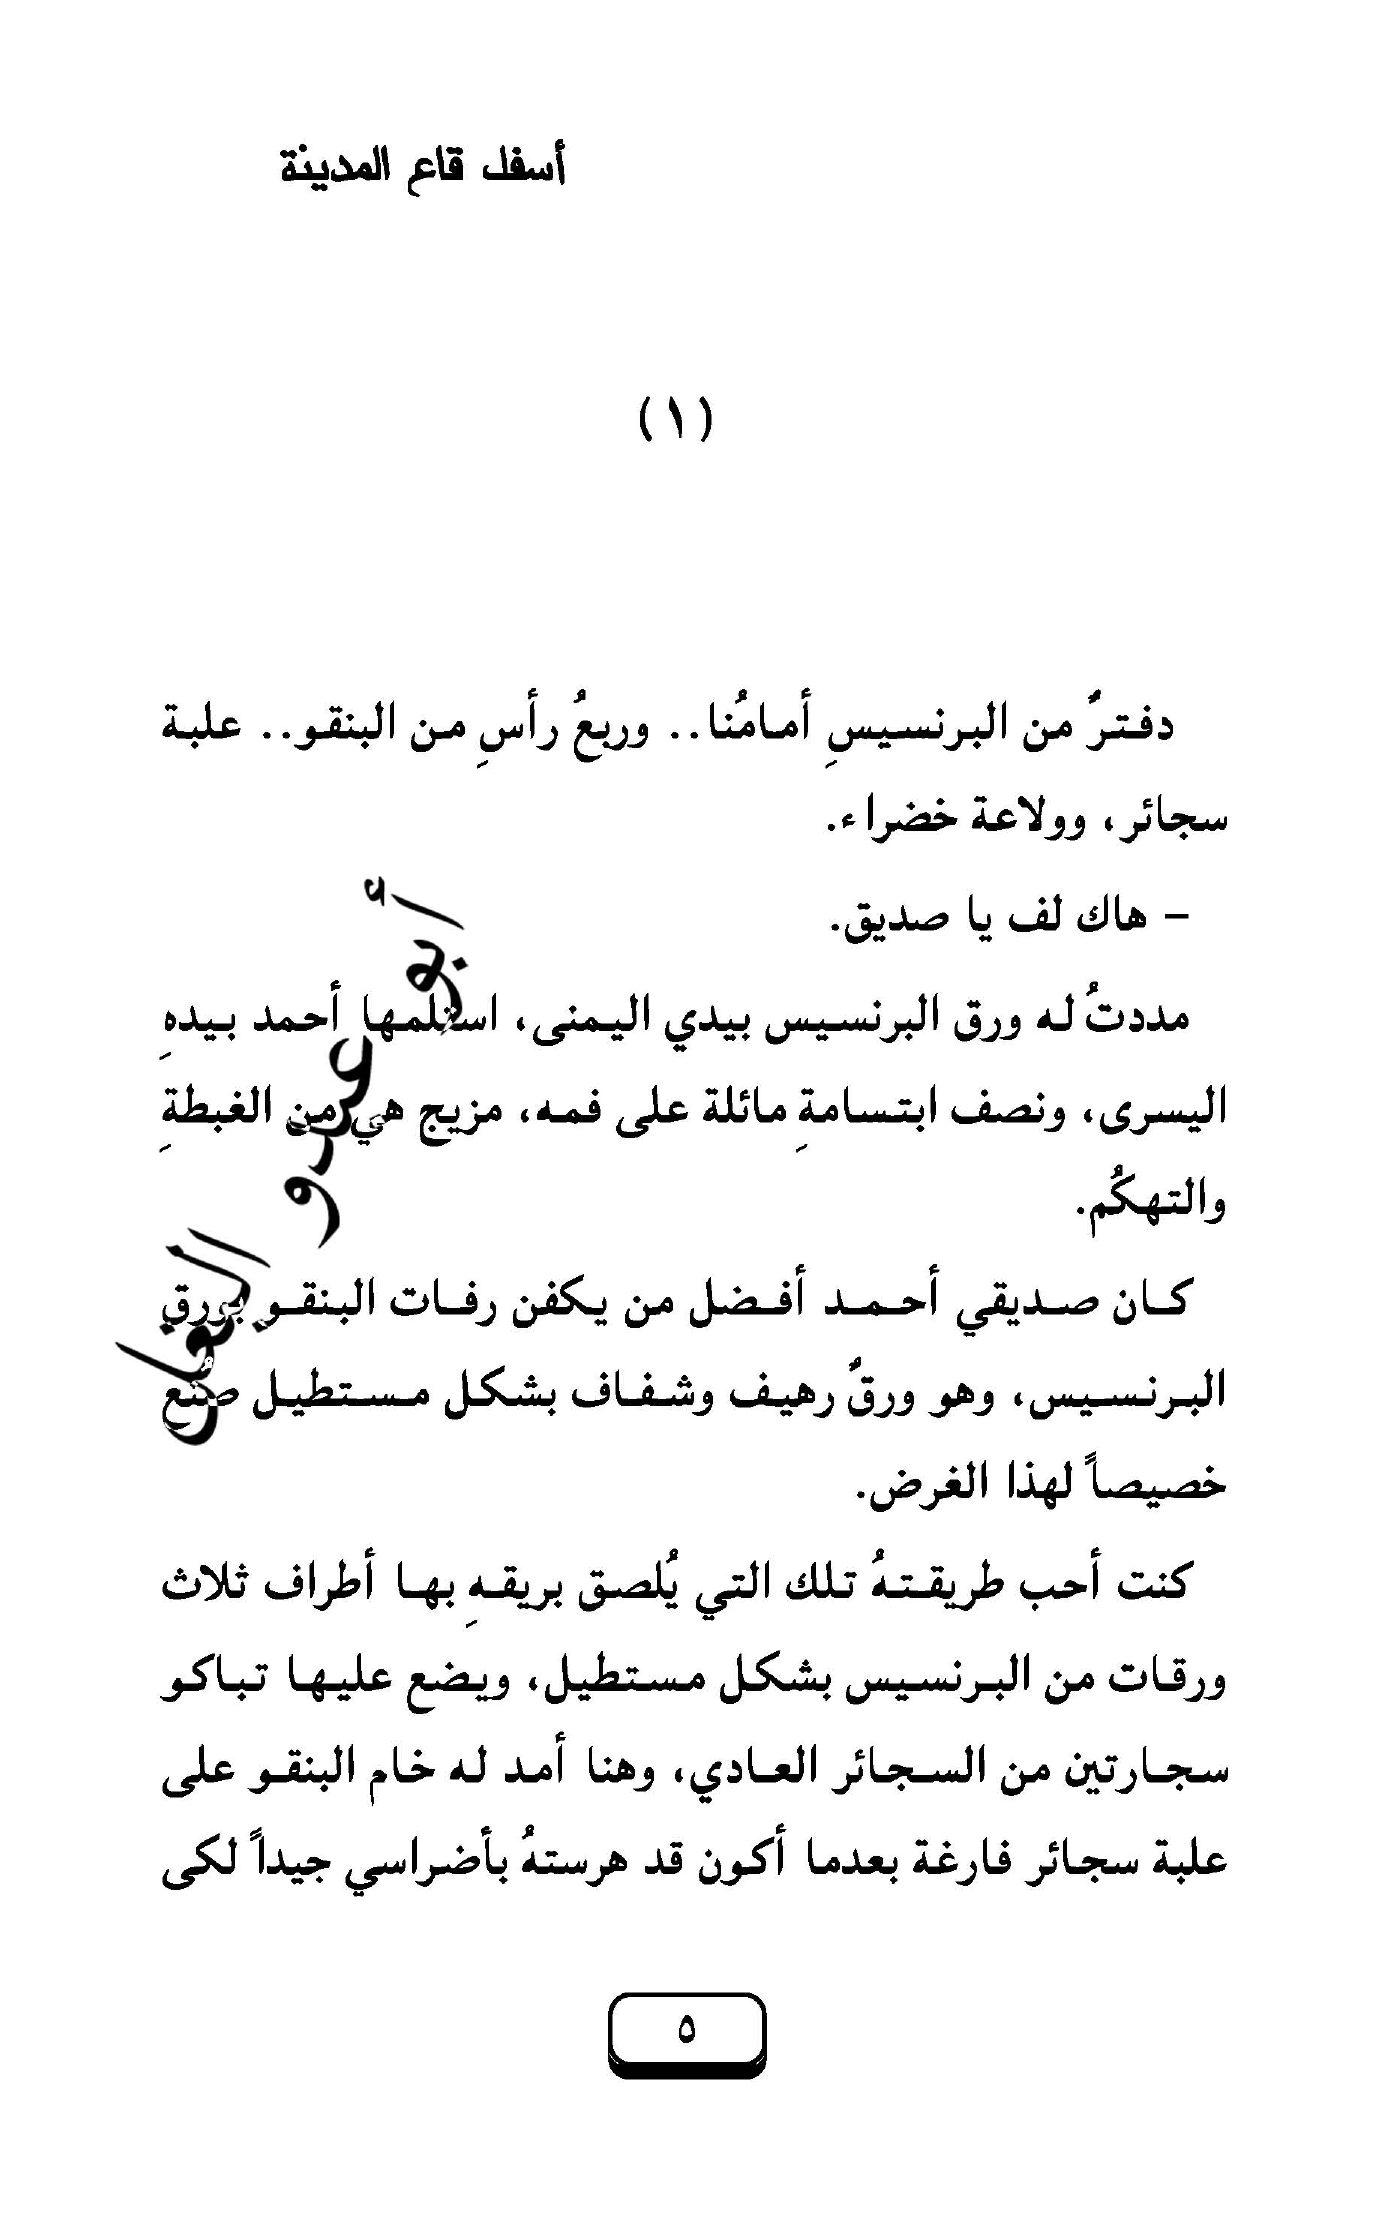 أسفل قاع المدينة
(١)
دفترٌ من البرنسيسِ أمامُنا.. وربعُ رأسِ من البنقو.. علبة
سجائر، وولاعة خضراء.
– هاك لف يا صديق.
مددتُ له ورق البرنسيس بيدي اليمنى، استلمها أحمد بيدهِ
اليسرى، ونصف ابتسامةِ مائلة على فمه، مزيج هي من الغبطةِ
والتهكُم.
كان صديقي أحمد أفضل من يكفن رفات البنقو بورق
البرنسيس، وهو ورقٌ رهيف وشفاف بشكل مستطيل صُنع
خصيصاً لهذا الغرض.
كنت أحب طريقتهُ تلك التي يُلصق بريقهِ بها أطراف ثلاث
ورقات من البرنسيس بشكل مستطيل، ويضع عليها تباكو
سجارتين من السجائر العادي، وهنا أمد له خام البنقو على
علبة سجائر فارغة بعدما أكون قد هرستهُ بأضراسي جيداً لكى
٥